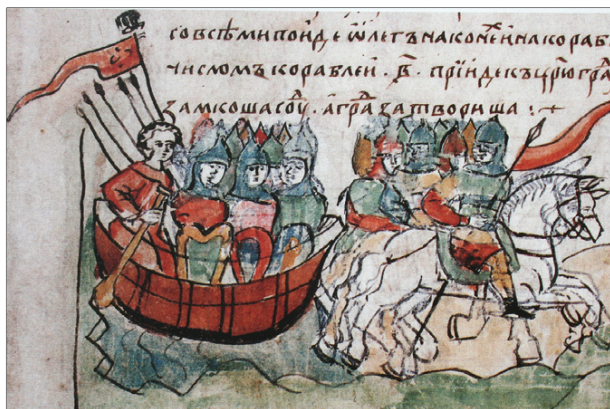 совсѣмипоиде ѡлегънаконѣхинакораб
числомъкораблеи . в҃ . прїидекъцр҃югра
замкошасоу . аграⷣзатвориша : ~